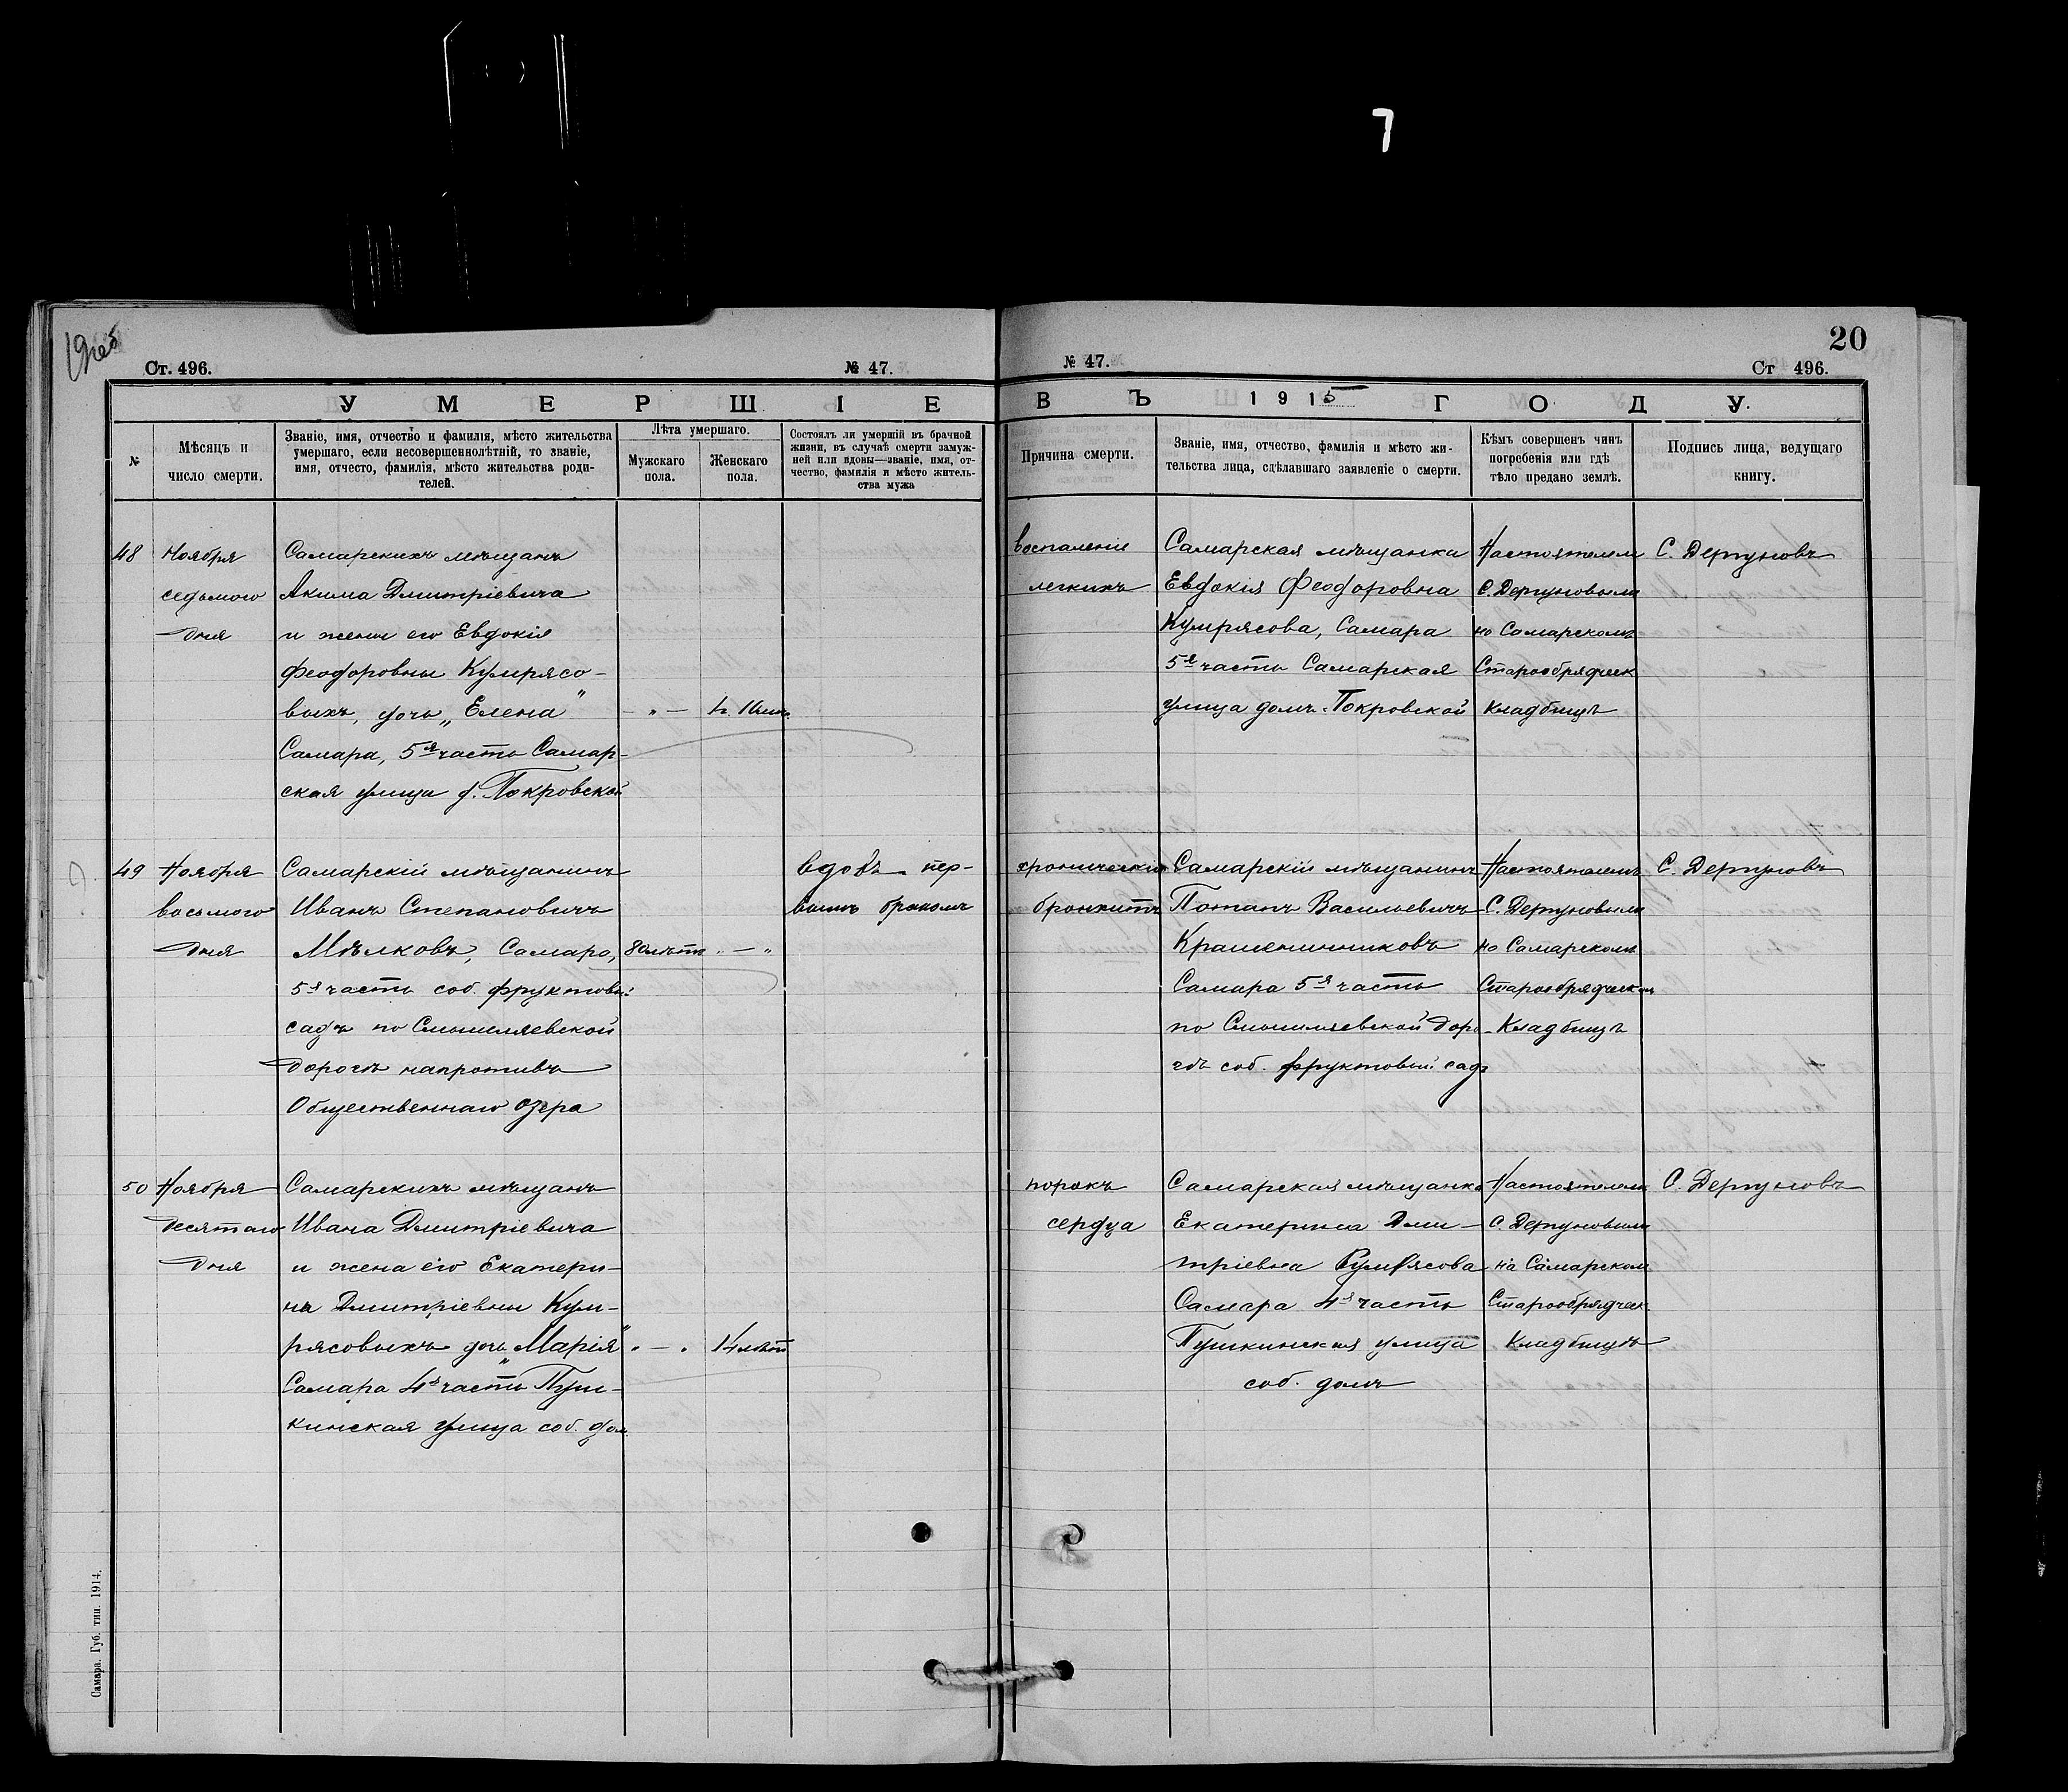 7
20
Ст. 496.
№ 47.
№ 47.
Ст 496.
УМЕРШІЕ
ВЪ 1915 ГОДУ.
№
Мѣсяцъ и
число смерти.
Званіе, имя, отчество и фамилія, мѣсто жительства
умершаго, если несовершеннолѣтній, то званіе,
имя, отчесто, фамилія, мѣсто жительства роди-
телей.
Лѣта умершаго.
Мужскаго
пола.
Женскаго
пола.
Состоялъ ли умершій въ брачной
жизни, въ случаѣ смерти замуж-
ней или вдовы—званіе, имя, от-
чество, фамилія и мѣсто житель-
ства мужа
Причина смерти.
Званіе, имя, отчество, фамилія и мѣсто жи-
тельства лица, сдѣлавшаго заявленіе о смерти.
Кѣмъ совершенъ чинъ
погребенія или гдѣ
тѣло предано землѣ.
Подпись лица, ведущаго
книгу.
48
Ноября
седьмого
дня
Самарскихъ мѣщанъ
Акима Дмитріевича
и жены его Евдокія
Феодоровны Кумрясо-
выхъ, дочь „Елена"
Самара, 5я часть Самар-
ская улица д. Покровской
воспаленіе
легкихъ
Самарская мѣщанка
Евдокія Феодоровна
Кумрясова, Самара
5я часть Самарская
улица домъ Покровской
Настоятелем
С. Дергуновым
на Самарскомъ
Старообрядческ
Кладбищѣ
С. Дергуновъ
49
Ноября
восьмого
дня
Самарскій мѣщанинъ
Иванъ Степановичъ
Мѣлковъ, Самара,
5я часть соб. фруктовый
садъ по Смышляевской
дорогѣ напротивъ
Общественнаго озера
80 лѣтъ
вдовъ пер-
вымъ бракомъ
хроническій
бронхитъ
Самарскій мѣщанинъ
Потапъ Васильевичъ
Крашенинниковъ
Самара 5я часть
по Смышляевской доро-
гѣ соб. фруктовый садъ
Настоятелемъ
С. Дергуновымъ
на Самарскомъ
Старообрядческом
Кладбищѣ
С. Дергуновъ
50
Ноября
десятаго
дня
Самарскихъ мѣщанъ
Ивана Дмитріевича
и жена его Екатери-
на Дмитріевны Кум-
рясовыхъ дочь „Марія"
Самара 4я часть Пуш-
кинская улица соб. дом.
14 лѣтъ
порокъ
сердца
Самарская мѣщанка
Екатерина Дми-
тріевна Кумрясова
Самара 4я часть
Пушкинская улица
соб. домъ
Настоятелем
С. Дергуновым
на Самарском
Старообрядческ.
Кладбищѣ
С. Дергуновъ
Самара. Губ. тип. 1914.